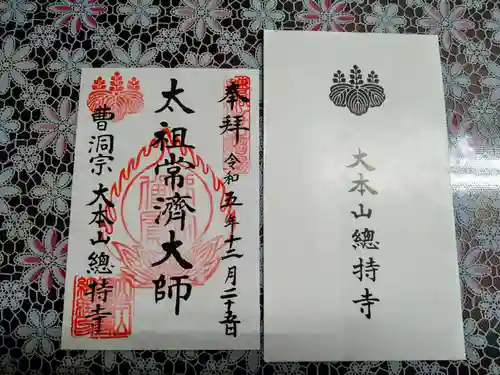 奉拝 令和五年十二月二十五日
太祖常濟大師
曹洞宗 大本山總持寺
大本山總持寺